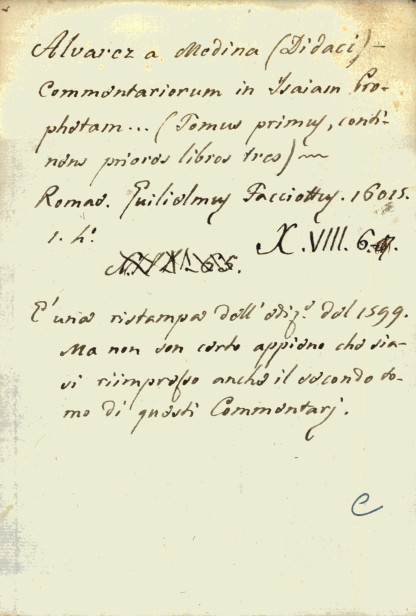 Alvarez a Medina (Didaci) -
Commentariorum in Isaiam Pro-
phetam... (Tomus primus, conti-
nens priores libros tres) —
Romae. Guilielmus Facciottus. 16015.
1. h.°
X. VIII. 6.
E' una ristampa dell' ediz.e del 1599.
Ma non son certo appieno che sia-
si riimpresso anche il secondo to-
mo di questi Commentarj.
C